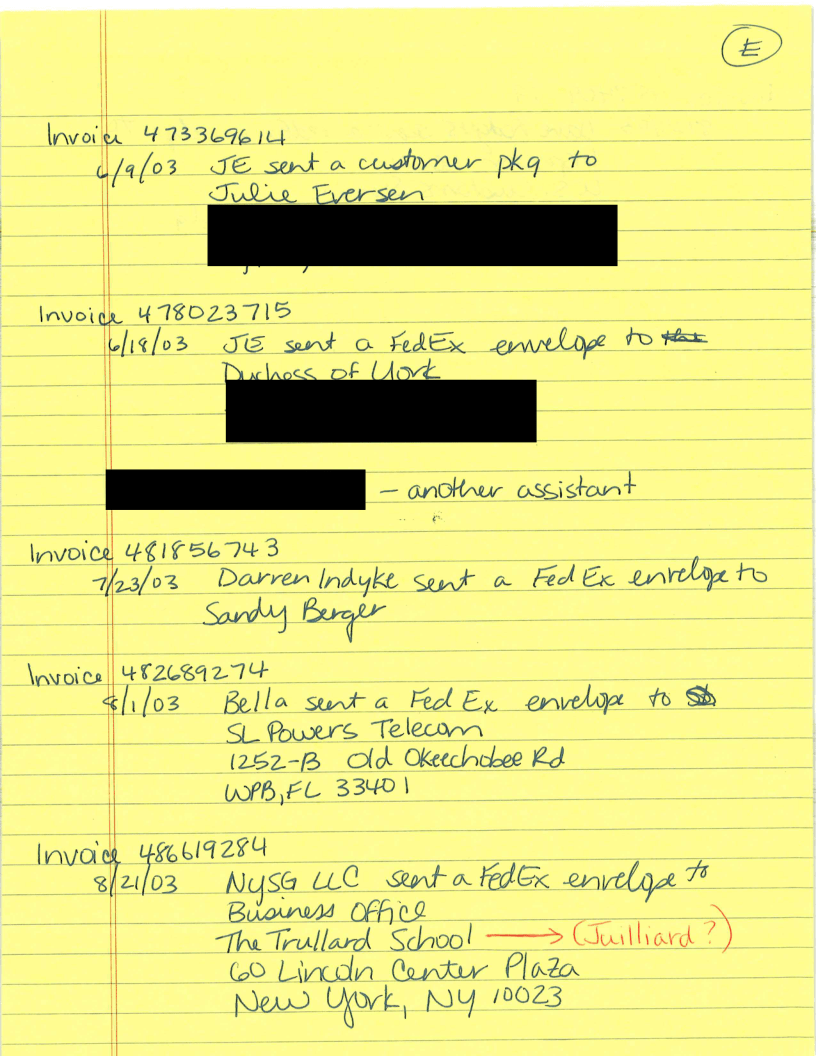 E
Invoice 473369614
6/9/03 JE sent a customer pkg to
Julie Eversen
Invoice 478023715
6/18/03 JE sent a FedEx envelope to
Duchess of York
– another assistant
Invoice 481856743
7/23/03 Darren Indyke sent a FedEx envelope to
Sandy Berger
Invoice 482689274
8/1/03 Bella sent a Fed Ex envelope to
SL Powers Telecom
1252-B Old Okeechobee Rd
WPB, FL 33401
Invoice 486619284
8/21/03 NYSG LLC sent a FedEx envelope to
Business Office
The Trullard School → (Juilliard?)
60 Lincoln Center Plaza
New York, NY 10023